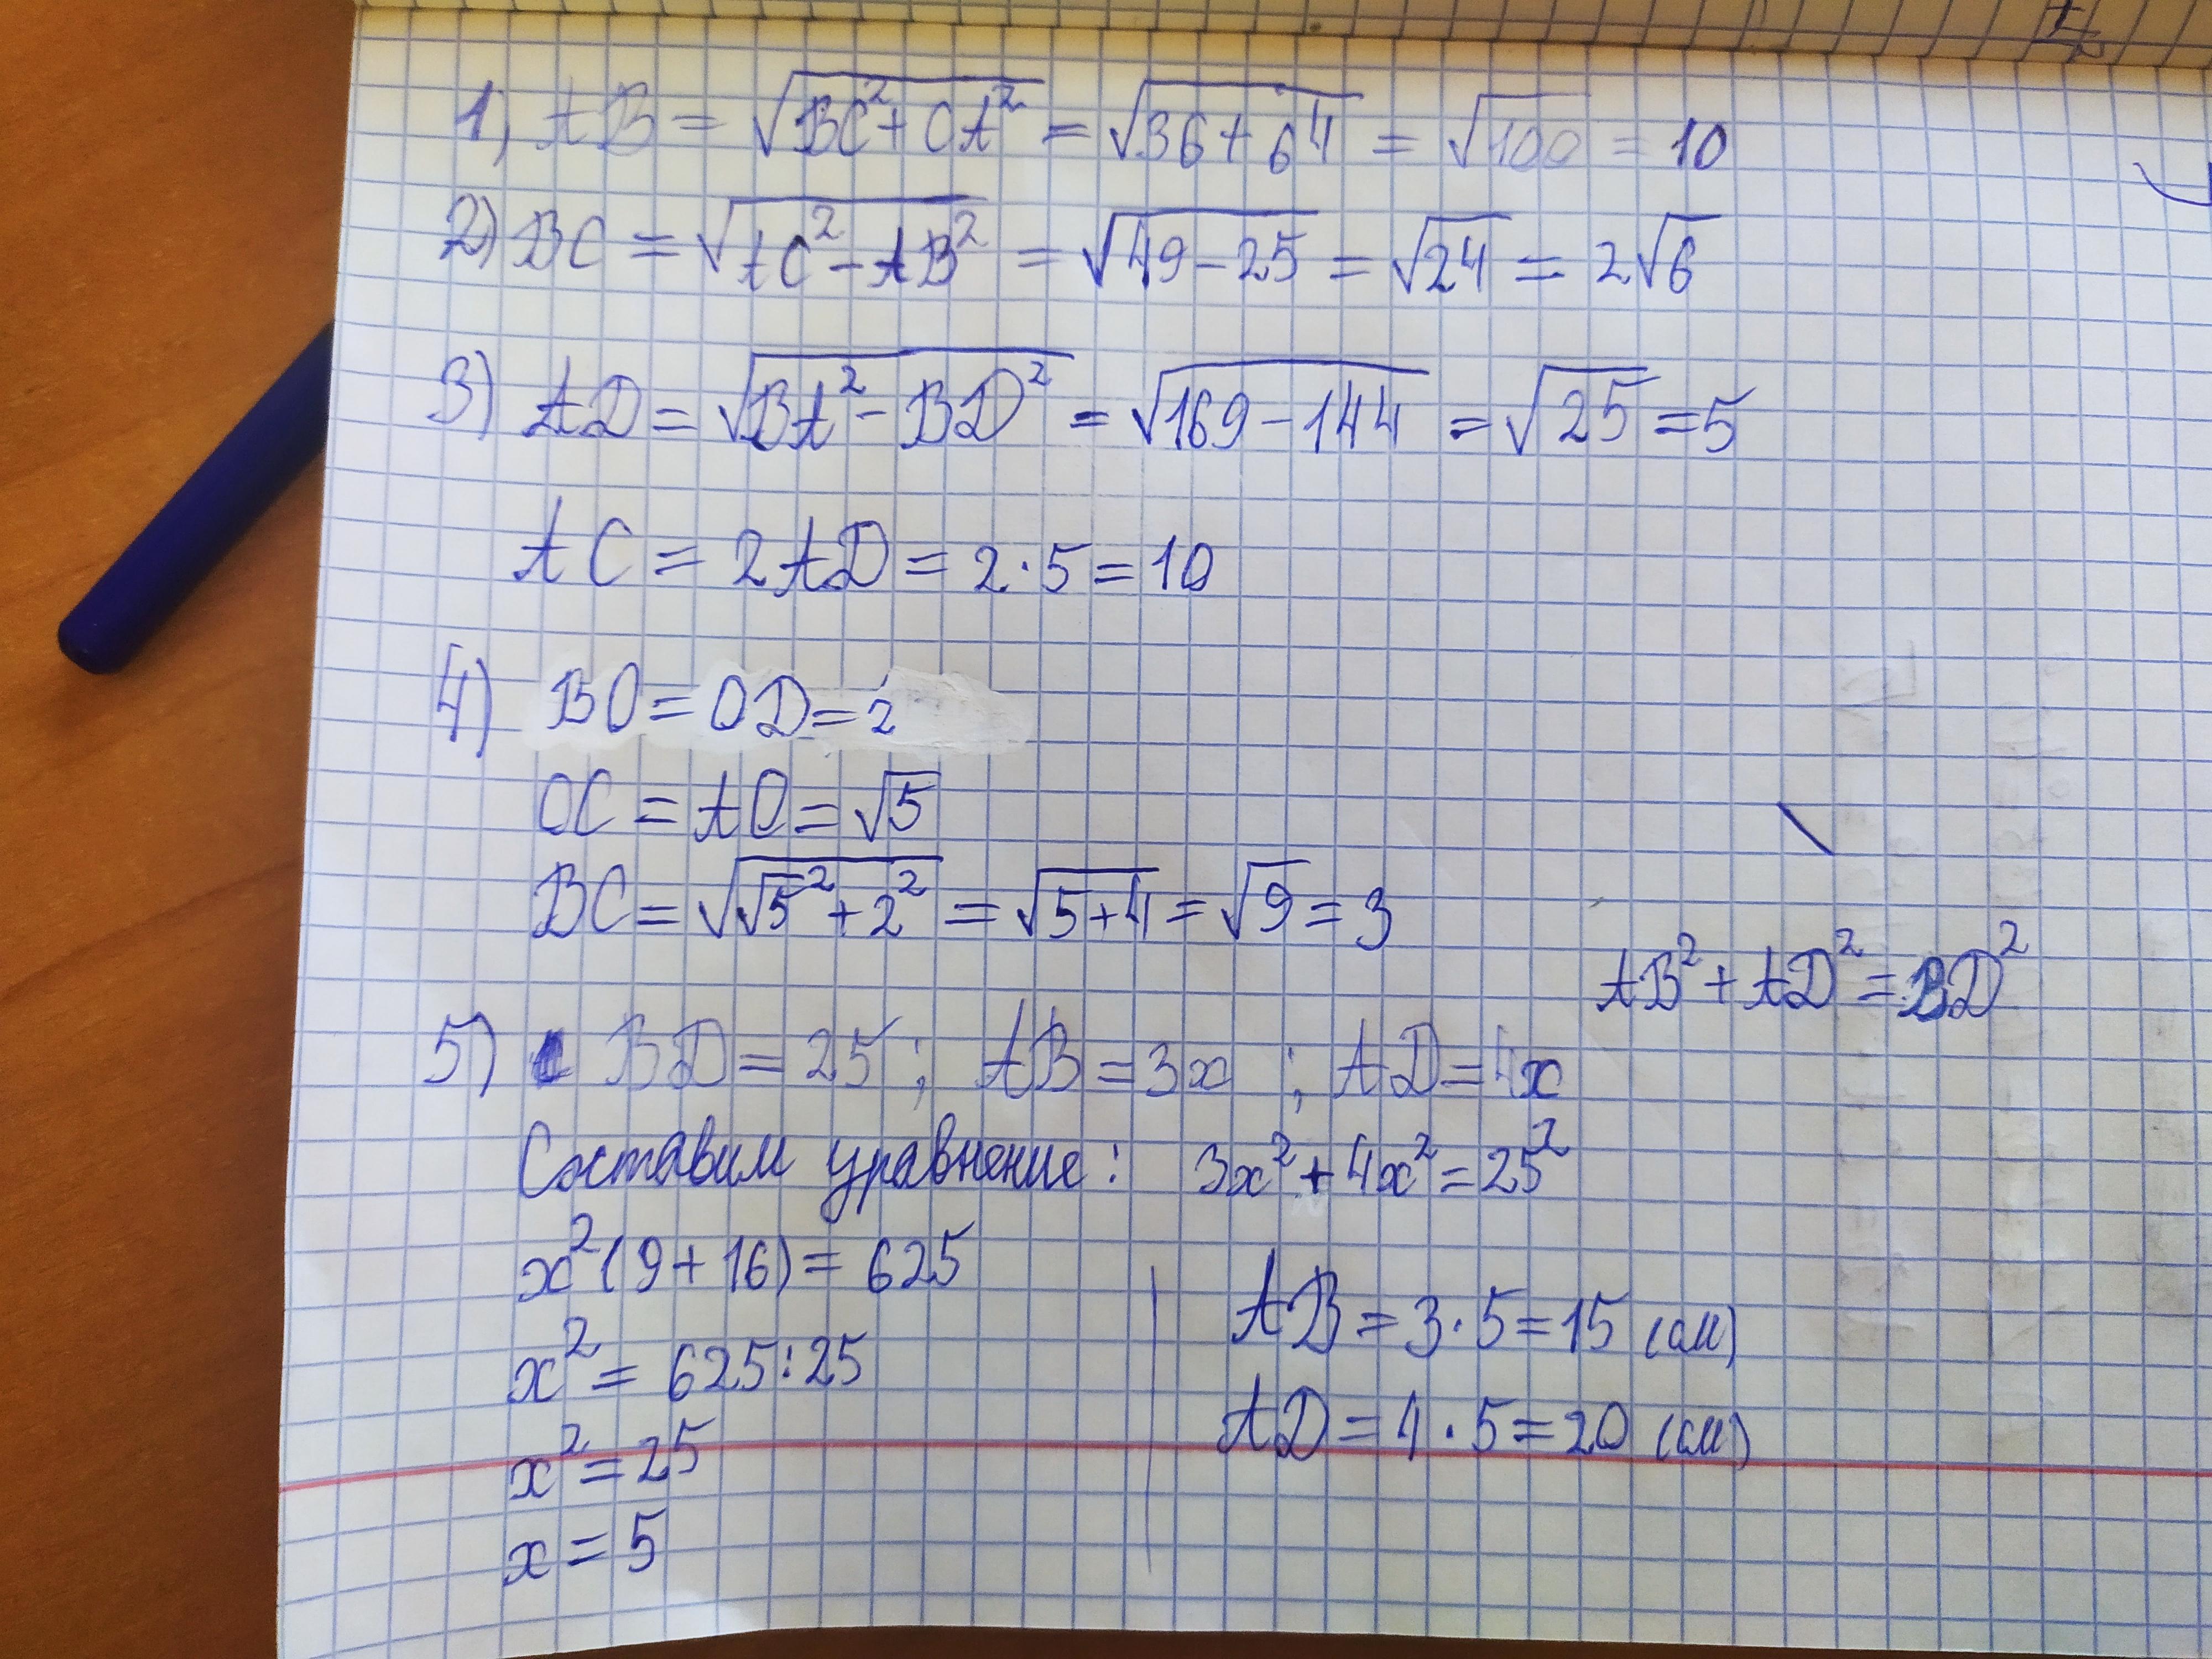 1) AB = √(BC² + CA²) = √(36 + 64) = √100 = 10
2) BC = √(AC² - AB²) = √(49 - 25) = √24 = 2√6
3) AD = √(BA² - BD²) = √(169 - 144) = √25 = 5
AC = 2AD = 2 · 5 = 10
4) BO = OD = 2
OC = AO = √5
BC = √(√5² + 2²) = √(5+4) = √9 = 3
AB² + AD² = BD²
5) BD = 25 ; AB = 3x ; AD = 4x
Составим уравнение : 3x² + 4x² = 25²
x² (9 + 16) = 625
x² = 625 : 25
x² = 25
x = 5
AB = 3 · 5 = 15 (см)
AD = 4 · 5 = 20 (см)